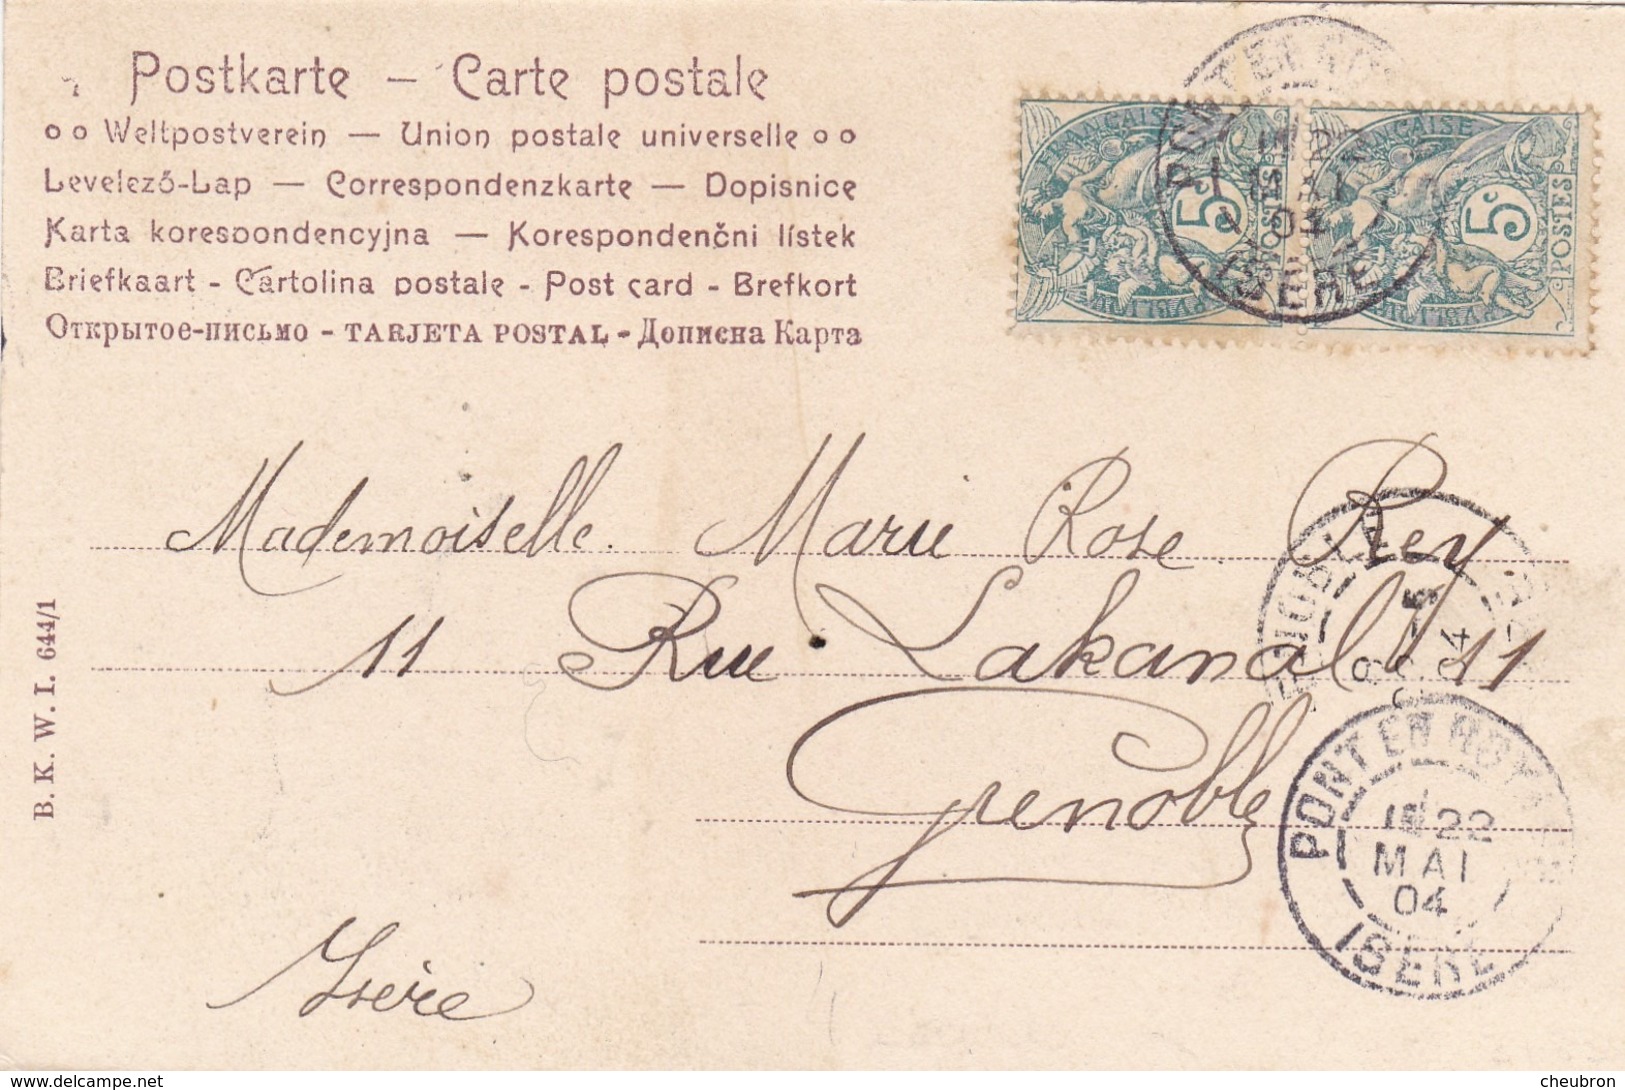 Postkarte – Carte postale
Weltpostverein — Union postale universelle
Levelező-Lap — Correspondenzkarte — Dopisnice
Karta korespondencyjna — Korespondenční lístek
Briefkaart - Cartolina postale - Post card - Brefkort
Открытое-письмо - TARJETA POSTAL - Дописна Карта
FRANÇAISE
5c
POSTES
FRANÇAISE
5c
POSTES
MAI
04
ISERE
Mademoiselle Marie Rose Rey
11 Rue Lakanal 11
Grenoble
Isère
B. K. W. I. 644/1
PONT EN ROYANS
22
MAI
04
ISERE
www.delcampe.net
cheubron